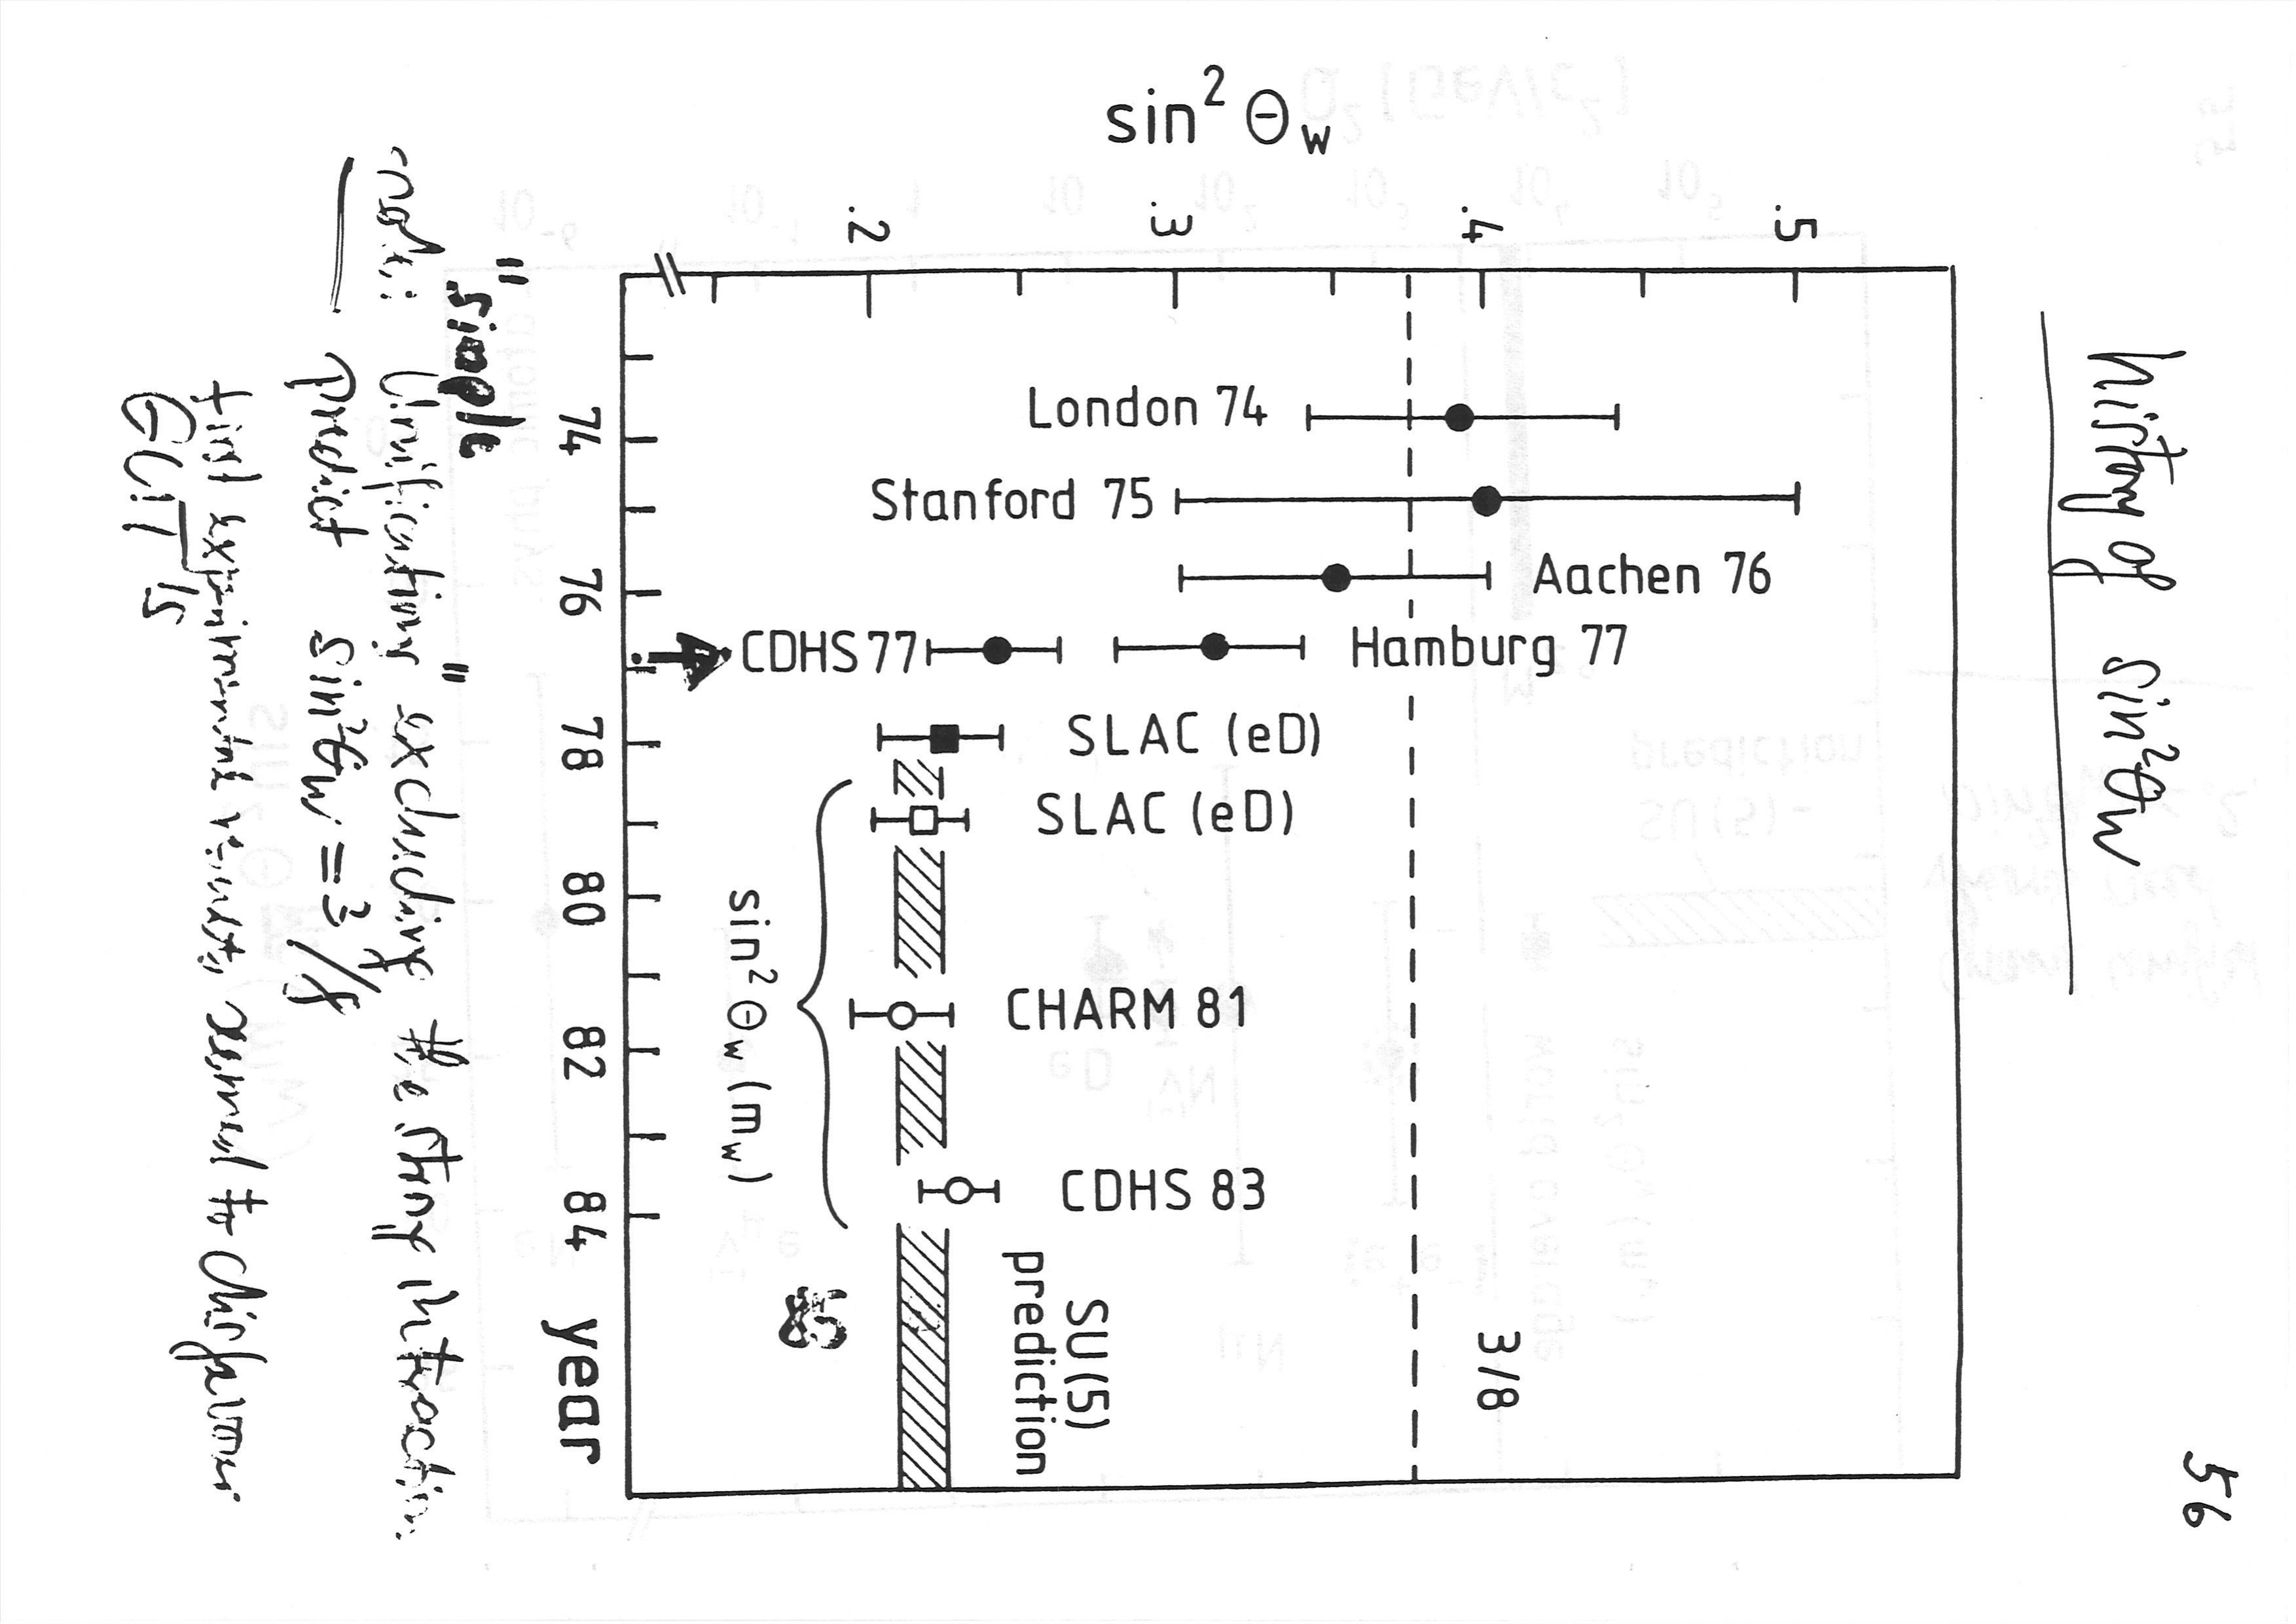 56
history of sin²θw
sin² Θw
.5
.4
.3
.2
London 74
Stanford 75
Aachen 76
CDHS 77
Hamburg 77
SLAC (eD)
SLAC (eD)
CHARM 81
CDHS 83
3/8
SU(5)
prediction
sin² Θw (mw)
85
74
76
78
80
82
84
year
"simple"
note: Unifications excluding the strong interaction
predict sin²θw = 3/8
first experimental results seemed to disfavour
GUTs